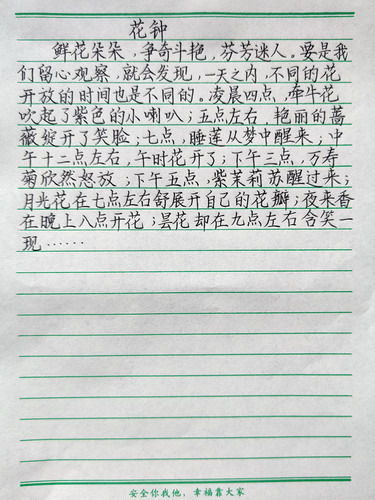 花钟
鲜花朵朵，争奇斗艳，芬芳迷人。要是我
们留心观察，就会发现，一天之内，不同的花
开放的时间也是不同的。凌晨四点，牵牛花
吹起了紫色的小喇叭；五点左右，艳丽的蔷
薇绽开了笑脸；七点，睡莲从梦中醒来；中
午十二点左右，午时花开了；下午三点，万寿
菊欣然怒放；下午五点，紫茉莉苏醒过来；
月光花在七点左右舒展开自己的花瓣；夜来香
在晚上八点开花；昙花却在九点左右含笑一
现……
安全你我他，幸福靠大家